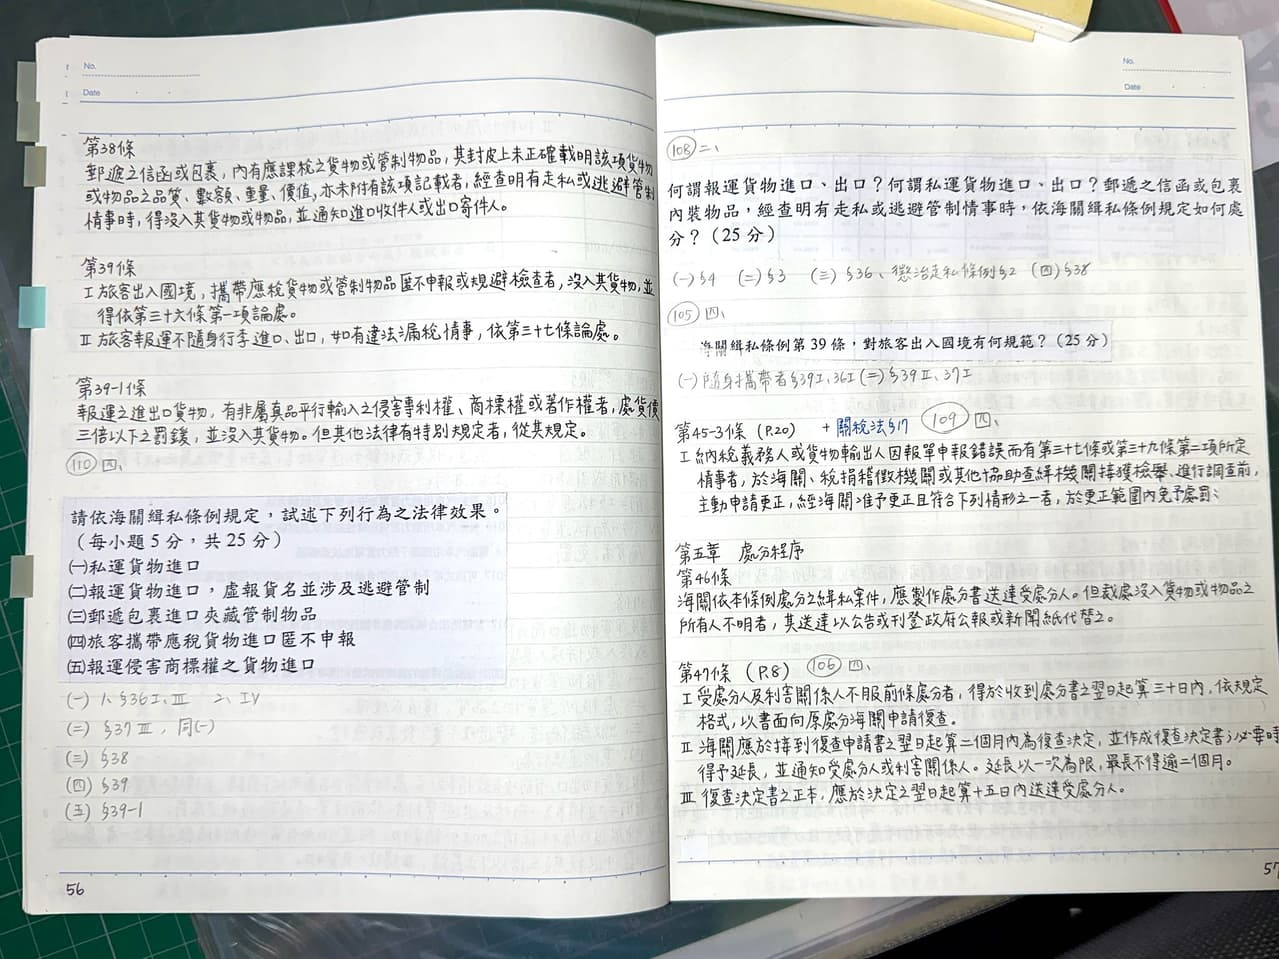 No.
Date
第38條
郵遞之信函或包裹，內有應課稅之貨物或管制物品，其封皮上未正確載明該項貨物
或物品之品質、數額、重量、價值，亦未附有該項記載者，經查明有走私或逃避管制
情事時，得沒入其貨物或物品，並通知進口收件人或出口寄件人。
第39條
I 旅客出入國境，攜帶應稅貨物或管制物品匿不申報或規避檢查者，沒入其貨物，並
得依第三十六條第一項論處。
II 旅客報運不隨身行李進口、出口，如有違法漏稅情事，依第三十七條論處。
第39-1條
報運之進出口貨物，有非屬真品平行輸入之侵害專利權、商標權或著作權者，處貨價
三倍以下之罰鍰，並沒入其貨物。但其他法律有特別規定者，從其規定。
110 四、
請依海關緝私條例規定，試述下列行為之法律效果。
（每小題 5 分，共 25 分）
㈠私運貨物進口
㈡報運貨物進口，虛報貨名並涉及逃避管制
㈢郵遞包裹進口夾藏管制物品
㈣旅客攜帶應稅貨物進口匿不申報
㈤報運侵害商標權之貨物進口
(一) 1、§36I、III 2、IV
(二) §37III，同(一)
(三) §38
(四) §39
(五) §39-1
56
No.
Date
108 二、
何謂報運貨物進口、出口？何謂私運貨物進口、出口？郵遞之信函或包裹
內裝物品，經查明有走私或逃避管制情事時，依海關緝私條例規定如何處
分？（25 分）
(一) §4 (二) §3 (三) §36、懲治走私條例§2 (四) §38
105 四、
海關緝私條例第 39 條，對旅客出入國境有何規範？（25 分）
(一) 隨身攜帶者§39I、36I (二) §39II、37I
第45-3條 (P.20) + 關稅法§17 109 四、
I 納稅義務人或貨物輸出人因報單申報錯誤而有第三十七條或第三十九條第二項所定
情事者，於海關、稅捐稽徵機關或其他協助查緝機關接獲檢舉、進行調查前，
主動申請更正，經海關准予更正且符合下列情形之一者，於更正範圍內免予處罰：
第五章 處分程序
第46條
海關依本條例處分之緝私案件，應製作處分書送達受處分人。但裁處沒入貨物或物品之
所有人不明者，其送達以公告或刊登政府公報或新聞紙代替之。
第47條 (P.8) 106 四、
I 受處分人及利害關係人不服前條處分者，得於收到處分書之翌日起算三十日內，依規定
格式，以書面向原處分海關申請復查。
II 海關應於接到復查申請書之翌日起算二個月內為復查決定，並作成復查決定書；必要時
得予延長，並通知受處分人或利害關係人。延長以一次為限，最長不得逾二個月。
III 復查決定書之正本，應於決定之翌日起算十五日內送達受處分人。
57